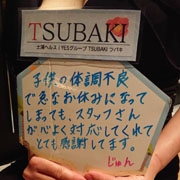 TSUBAKI
土浦ヘルス｜YESグループ TSUBAKI ツバキ
子供の体調不良
で急なお休みになって
しまっても、スタッフさん
が心よく対応してくれて
とても感謝してます。
じゅん